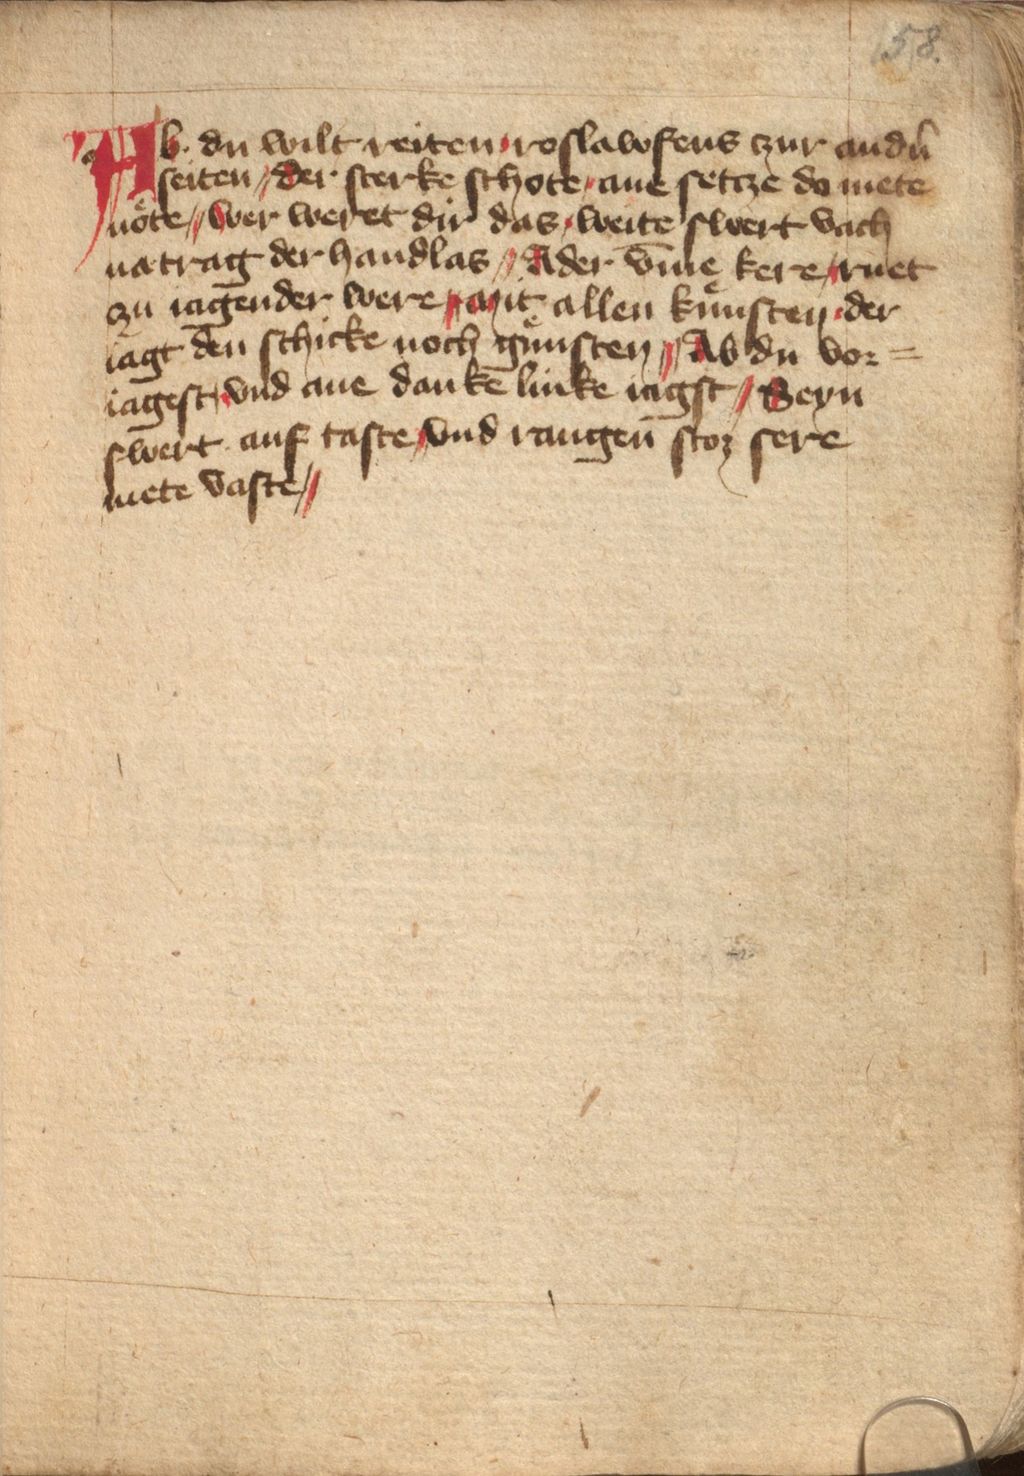 58.
Ab du wilt reiten roslawfens zur andñ
seiten // der sterke schote ane setcze do mete
nöte // wer weret dir das weite swert vach
na trag der handlas // Ader vm̄e kere ruet
zu iagender were // mit allen kůnsten der
iagt den schicke noch gůnsten // Ab du vor=
iagest vnd ane danke linke iagst // Seyn
swert auf taste vnd rangeñ stoz sere
mete vaste //